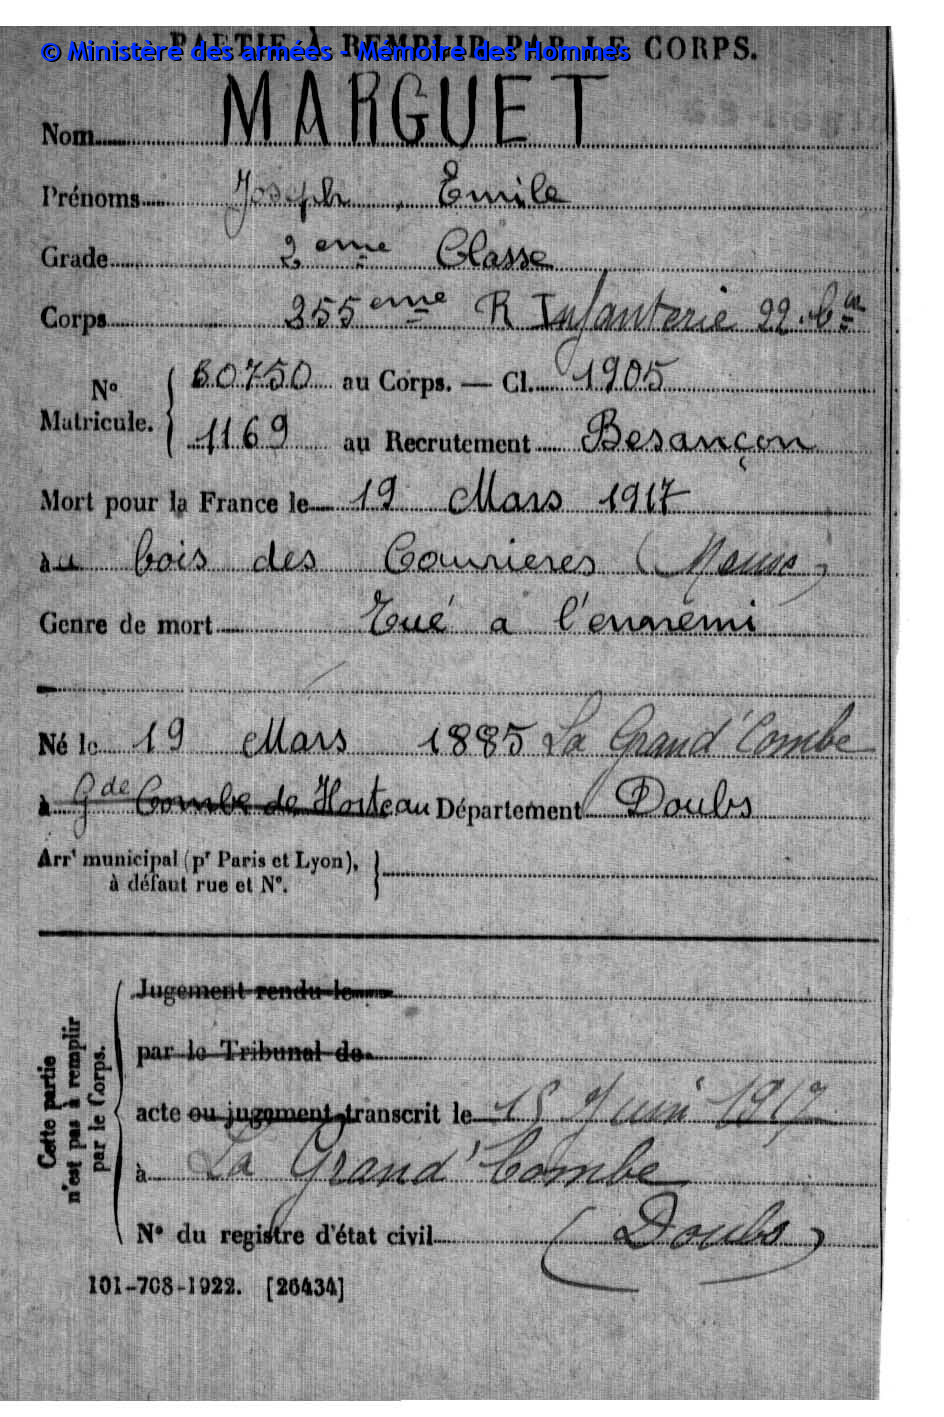 PARTIE À REMPLIR PAR LE CORPS.
© Ministère des armées - Mémoire des Hommes
Nom MARGUET
Prénoms Joseph, Emile
Grade 2 eme Classe
Corps 355 eme R Infanterie 22. Cie
No Matricule. { 60750 au Corps. — Cl. 1905
1169 au Recrutement Besançon
Mort pour la France le 19 Mars 1917
au bois des Courrieres (Meuse)
Genre de mort Tué a l'ennemi
Né le 19 Mars 1885 La Grand'Combe
à Gde Combe de Morteau Département Doubs
Arrt municipal (pr Paris et Lyon),
à défaut rue et No.
Cette partie
n'est pas à remplir
par le Corps.
Jugement rendu le
par le Tribunal de
acte ou jugement transcrit le 15 Juin 1917
à La Grand'Combe
No du registre d'état civil (Doubs)
101-708-1922. [26434]